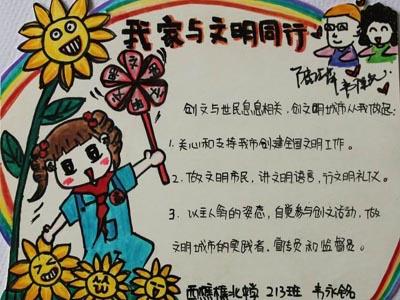 我家与文明同行
文明
创文与世民息息相关，创文明城市从我做起：
1. 关心和支持我市创建全国文明工作。
2. 做文明市民，讲文明语言，行文明礼仪。
3. 以主人翁的姿态，自觉参与创文活动，做
文明城市的实践者、宣传员和监督员。
西樵樵北 213班 韦永铭